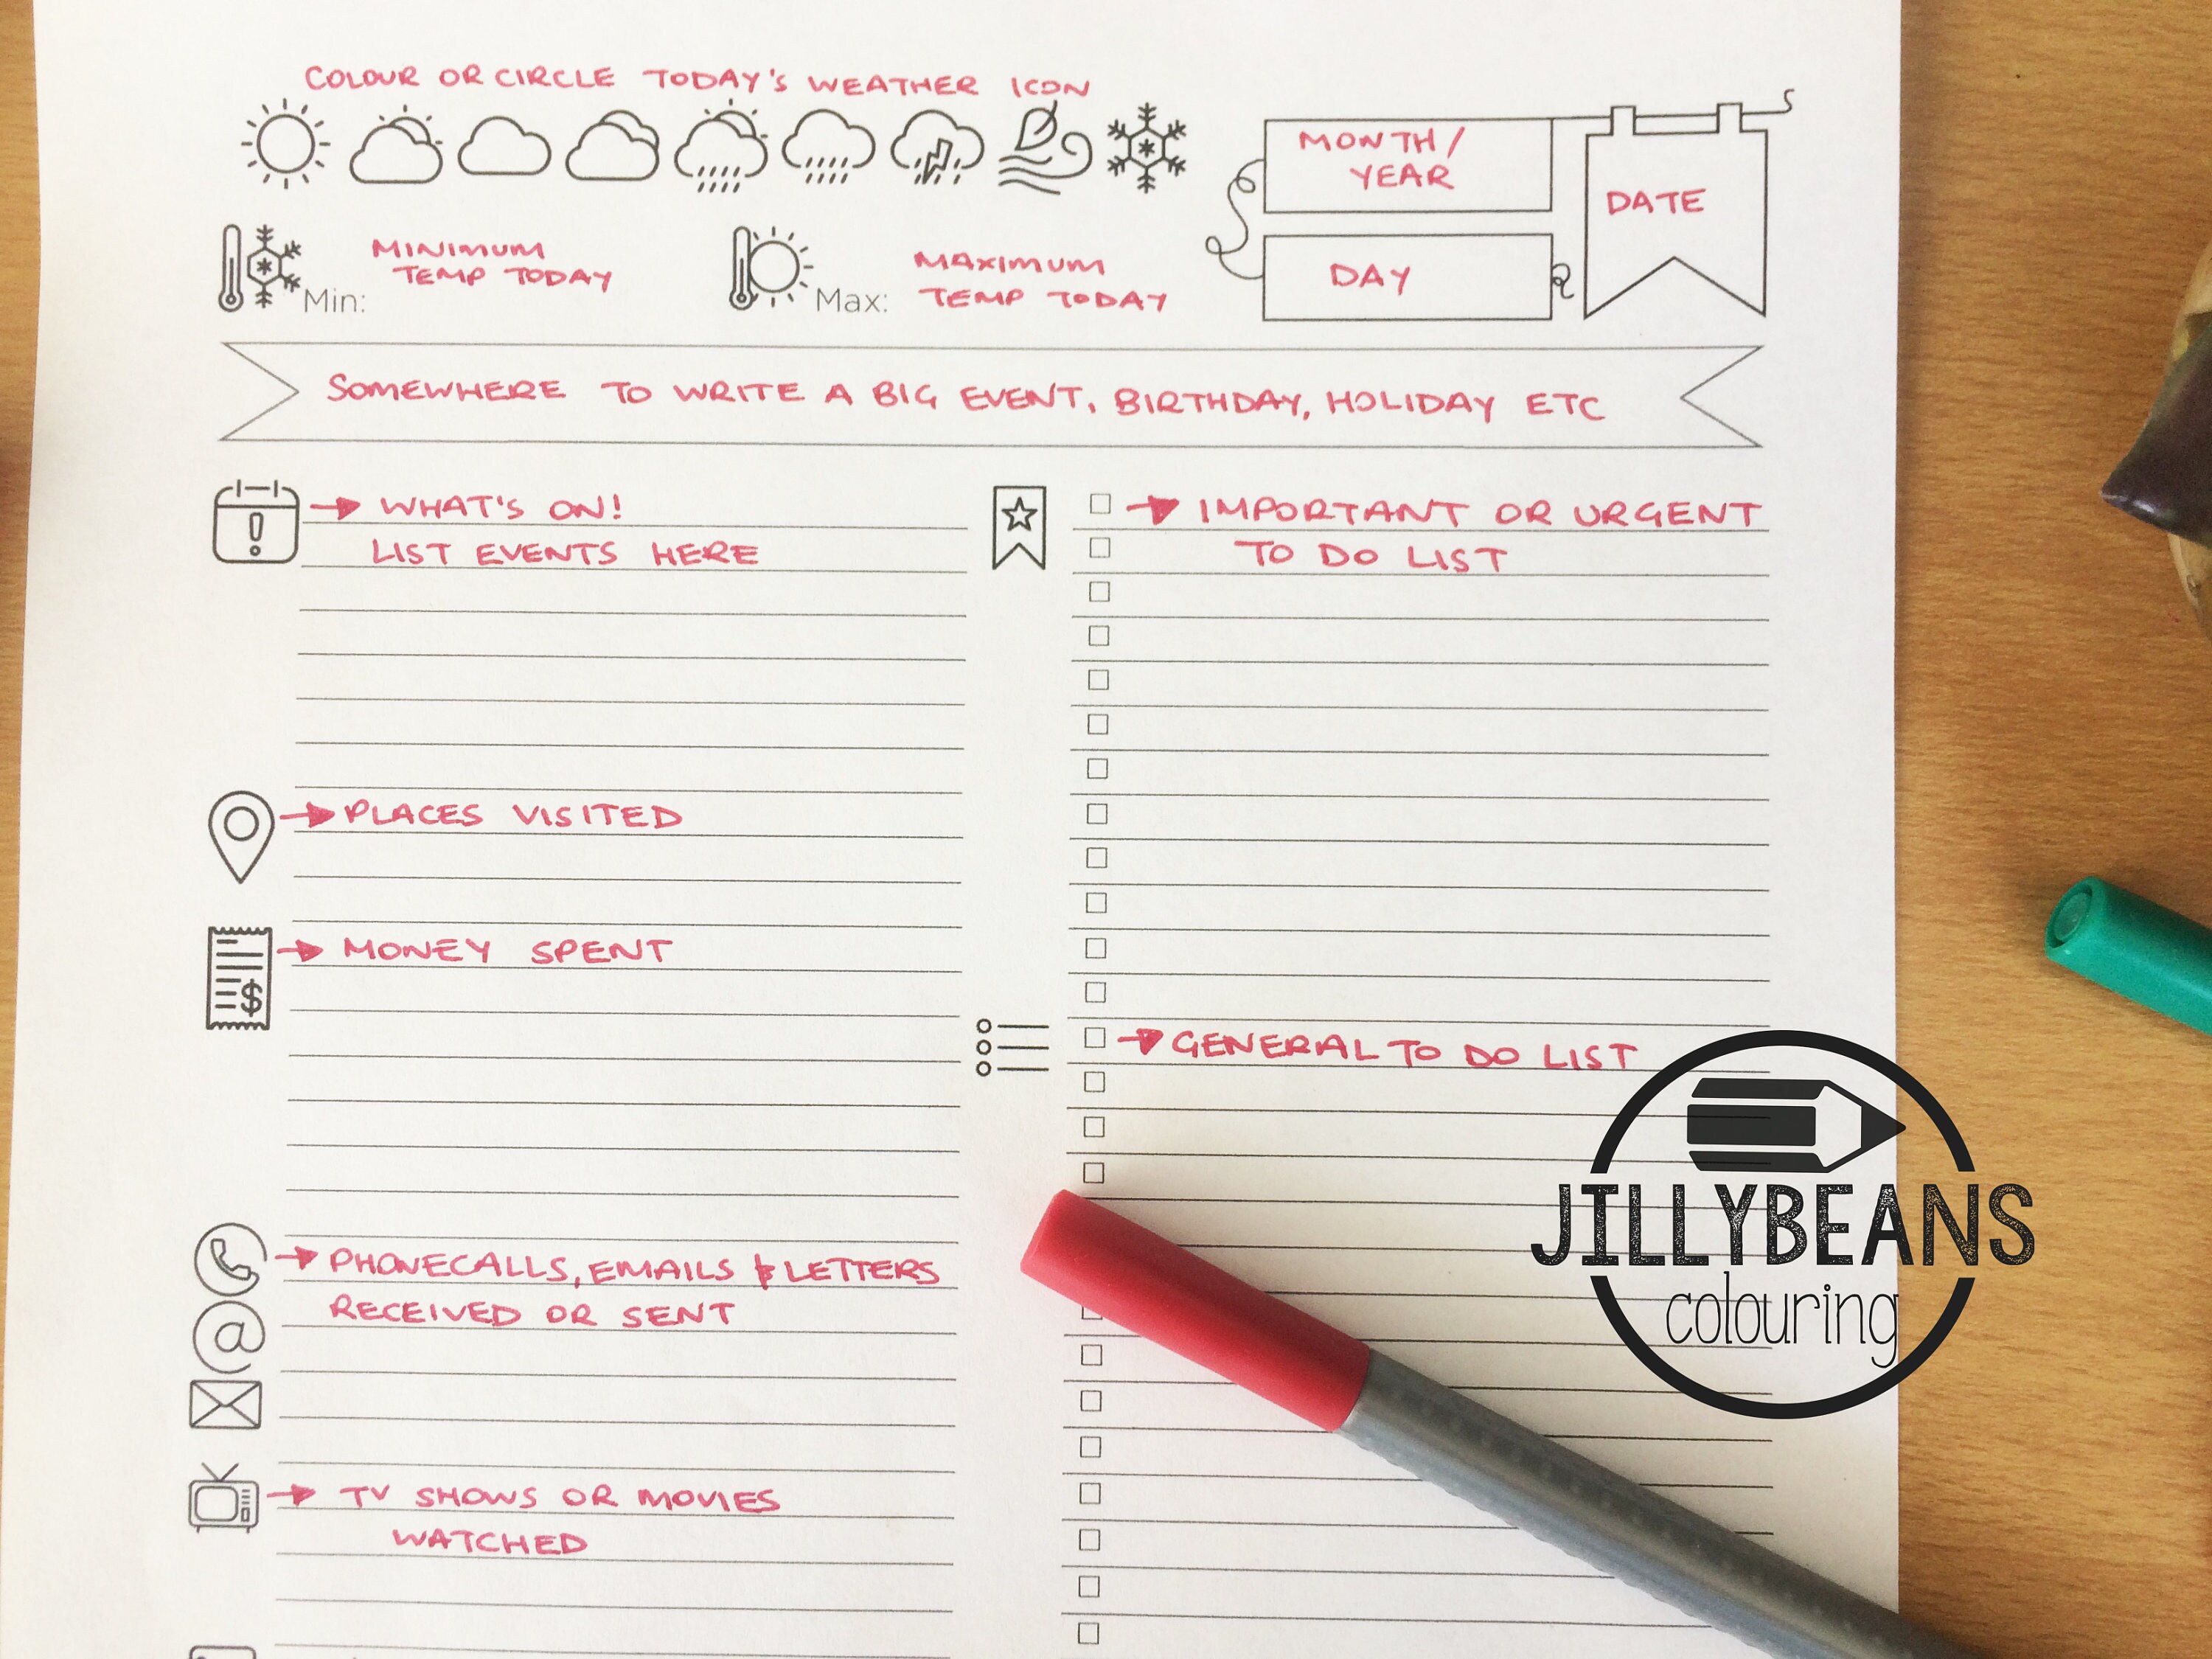 COLOUR OR CIRCLE TODAY'S WEATHER ICON
MONTH/
YEAR
DATE
Min: MINIMUM
TEMP TODAY
Max: MAXIMUM
TEMP TODAY
DAY
SOMEWHERE TO WRITE A BIG EVENT, BIRTHDAY, HOLIDAY ETC
WHAT'S ON!
LIST EVENTS HERE
IMPORTANT OR URGENT
TO DO LIST
PLACES VISITED
MONEY SPENT
$
GENERAL TO DO LIST
PHONECALLS, EMAILS & LETTERS
RECEIVED OR SENT
@
TV SHOWS OR MOVIES
WATCHED
JILLYBEANS
colouring